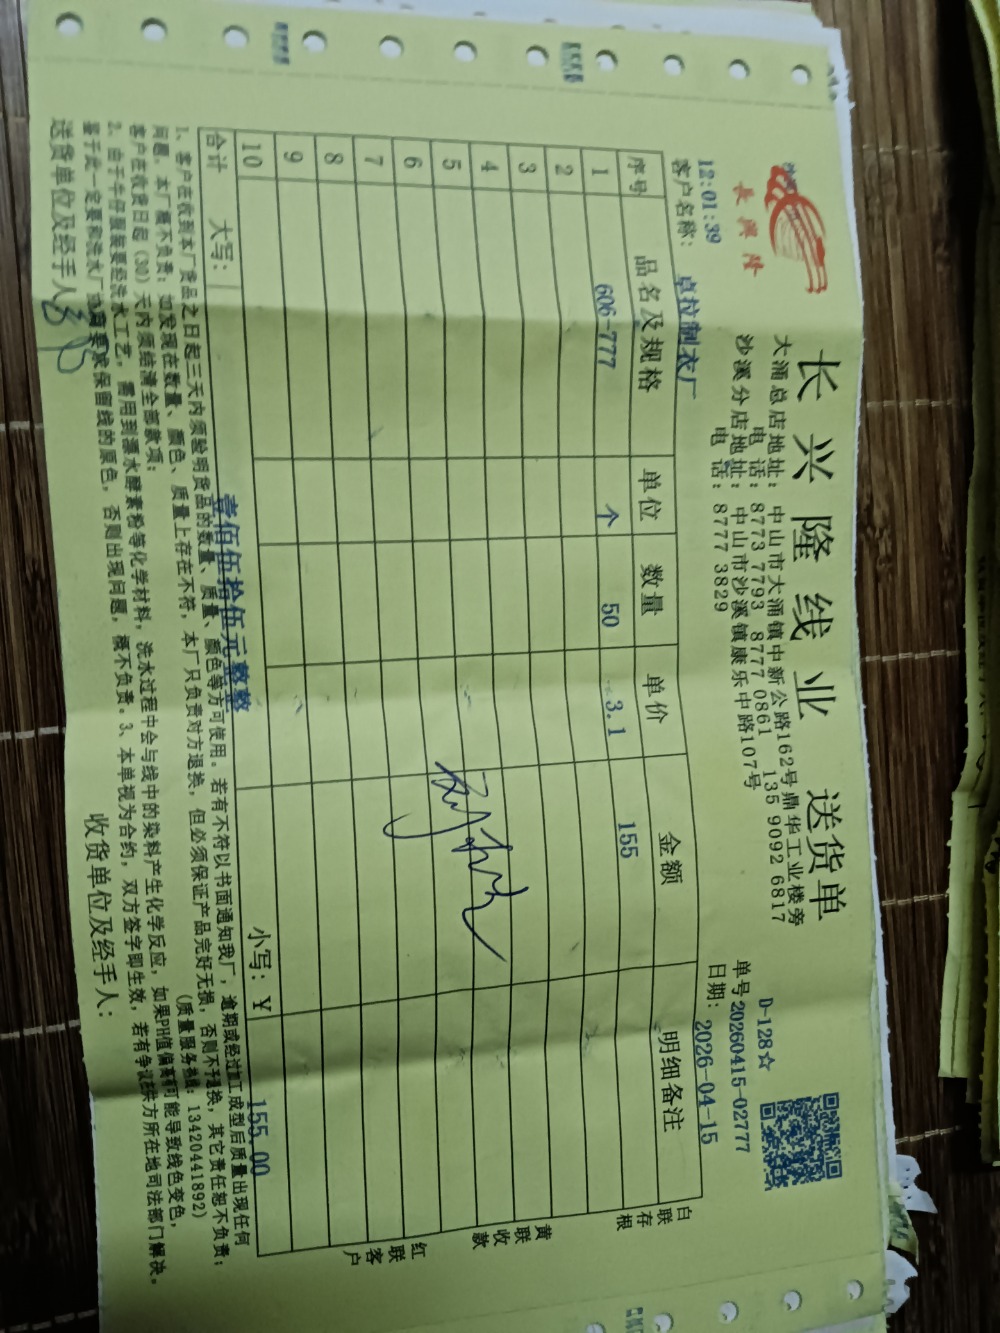 長興隆
长兴隆线业 送货单
大涌总店地址：中山市大涌镇中新公路162号鼎华工业楼旁
电 话：8773 7793 8777 0861 135 9092 6817
沙溪分店地址：中山市沙溪镇康乐中路107号
电 话：8777 3829
D-128☆
单号20260415-02777
日期：2026-04-15
12:01:39
客户名称：卓拉制衣厂
序号 品名及规格 单位 数量 单价 金额 明细备注
1 606-777 个 50 3.1 155
2
3
4
5
6
7
8
9
10
合计 大写：壹佰伍拾伍元整整 小写：￥155.00
白联存根
黄联收款
红联客户
1、客户在收到本厂货品之日起三天内须验明货品的数量、质量、颜色等方可使用。若有不符以书面通知我厂，逾期或经过加工成型后质量出现任何
问题，本厂概不负责；如发现在数量、颜色、质量上存在不符，本厂只负责对方退换，但必须保证产品完好无损，否则不予退换，其它责任恕不负责；
客户在收货日起（30）天内须给清全部款项； （质量服务热线：13420441892）
2、由于牛仔服装要经洗水工艺，需用到漂水酵素粉等化学材料，洗水过程中会与线中的染料产生化学反应，如果PH值偏高有可能导致线色变色，
鉴于此一定要和洗水厂协商要求保留线的原色，否则出现问题，概不负责。3、本单视为合约，双方签字即生效，若有争议在供方所在地司法部门解决。
送货单位及经手人： 收货单位及经手人：